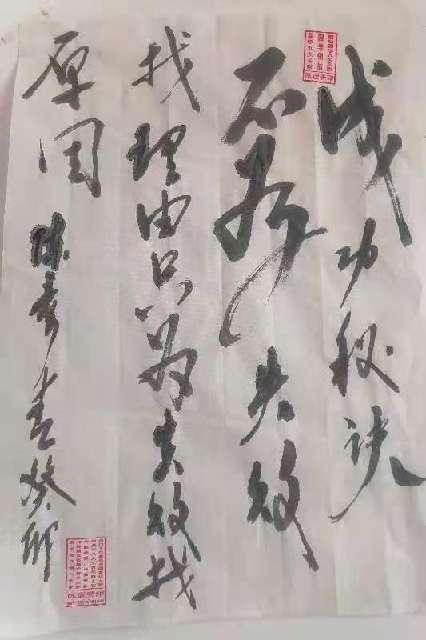 成功秘诀
不为失败
找理由只为失败找
原因 陈秀书癸卯